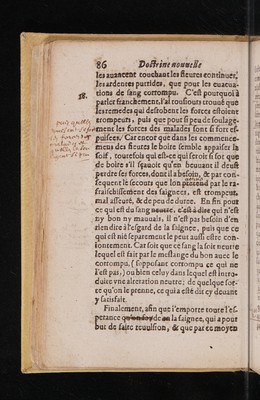 86 Doctrine nouuelle
les auancent touchant les fieures continues,
les ardentes putrides, que pour les euacua-
18.
tions de sang corrompu. C'est pourquoi à
parler franchement, i'ai tousiours trouué que
les remedes qui desrobent les forces estoient
trompeurs, puis que pour si peu de soulage-
ment les forces des malades sont si fort es-
puisees. Car encor que dans les commence-
mens des fieures le boire semble appaiser la
soif, toutesfois qui est-ce qui seroit si sot que
de boire s'il sçauoit qu'en beuuant il deust
perdre ses forces, dont il a besoin, & par con-
sequent le secours que lon pretend par le ra-
fraischissement des saignees, est trompeur,
mal asseuré, & de peu de duree. En fin pour
ce qui est du sang neutre, c'est à dire qui n'est
ny bon ny mauuais, il n'est pas besoin d'en
rien dire à l'esgard de la saignee, puis que ce
qui est nié separement le peut aussi estre con-
iointement. Car soit que ce sang la soit neutre
lequel est fait par le meslange du bon auec le
corrompu, (supposant corrompu ce qui ne
l'est pas,) ou bien celuy dans lequel est intro-
duite vne alteration neutre: de quelque sor-
te qu'on le prenne, ce qui a esté dit cy deuant
y satisfait.
Finalement, afin que i'emporte toute l'es-
perance de la saignee, qui a pour
but de faire reuulsion, & que par ce moyen